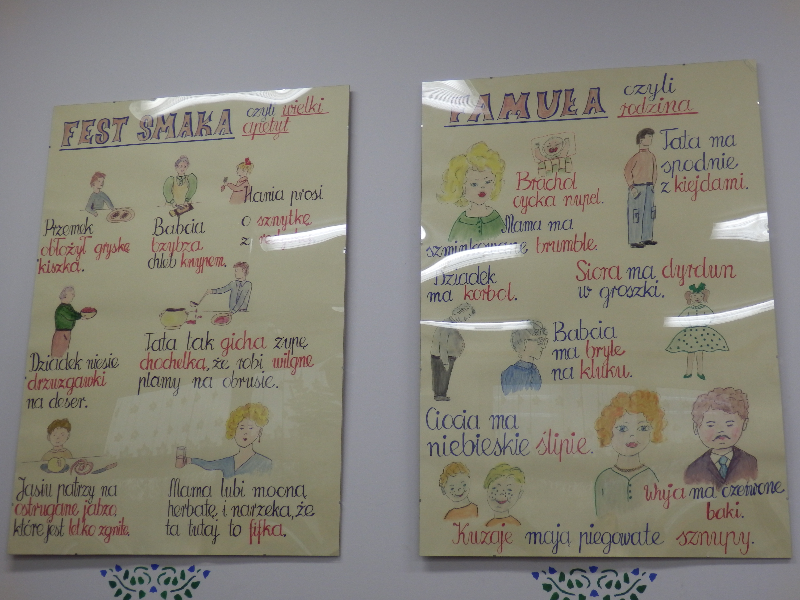 FEST SMAKA czyli wielki
apetyt
Przemek
obłożył gryskę
kiszką.
Babcia
brzybza
chleb knypem.
Hania prosi
o sznytkę
z
Dziadek niesie
drzuzgawki
na deser.
Tata tak gicha zupę
chochelką, że robi wilgne
plamy na obrusie.
Jasiu patrzy na
ostrugane jabzo,
które jest letko zgniłe.
Mama lubi mocną
herbatę, i narzeka, że
ta tutaj to fifka.
FAMUŁA czyli
rodzina
Brachol
cycka nupel.
Tata ma
spodnie
z kiejdami.
Mama ma
szminkowane brumble.
Dziadek
ma korbol.
Siora ma dyrdun
w groszki.
Babcia
ma bryle
na kluku.
Ciocia ma
niebieskie ślipie.
Wuja ma czerwone
baki.
Kuzaje mają piegowate sznupy.